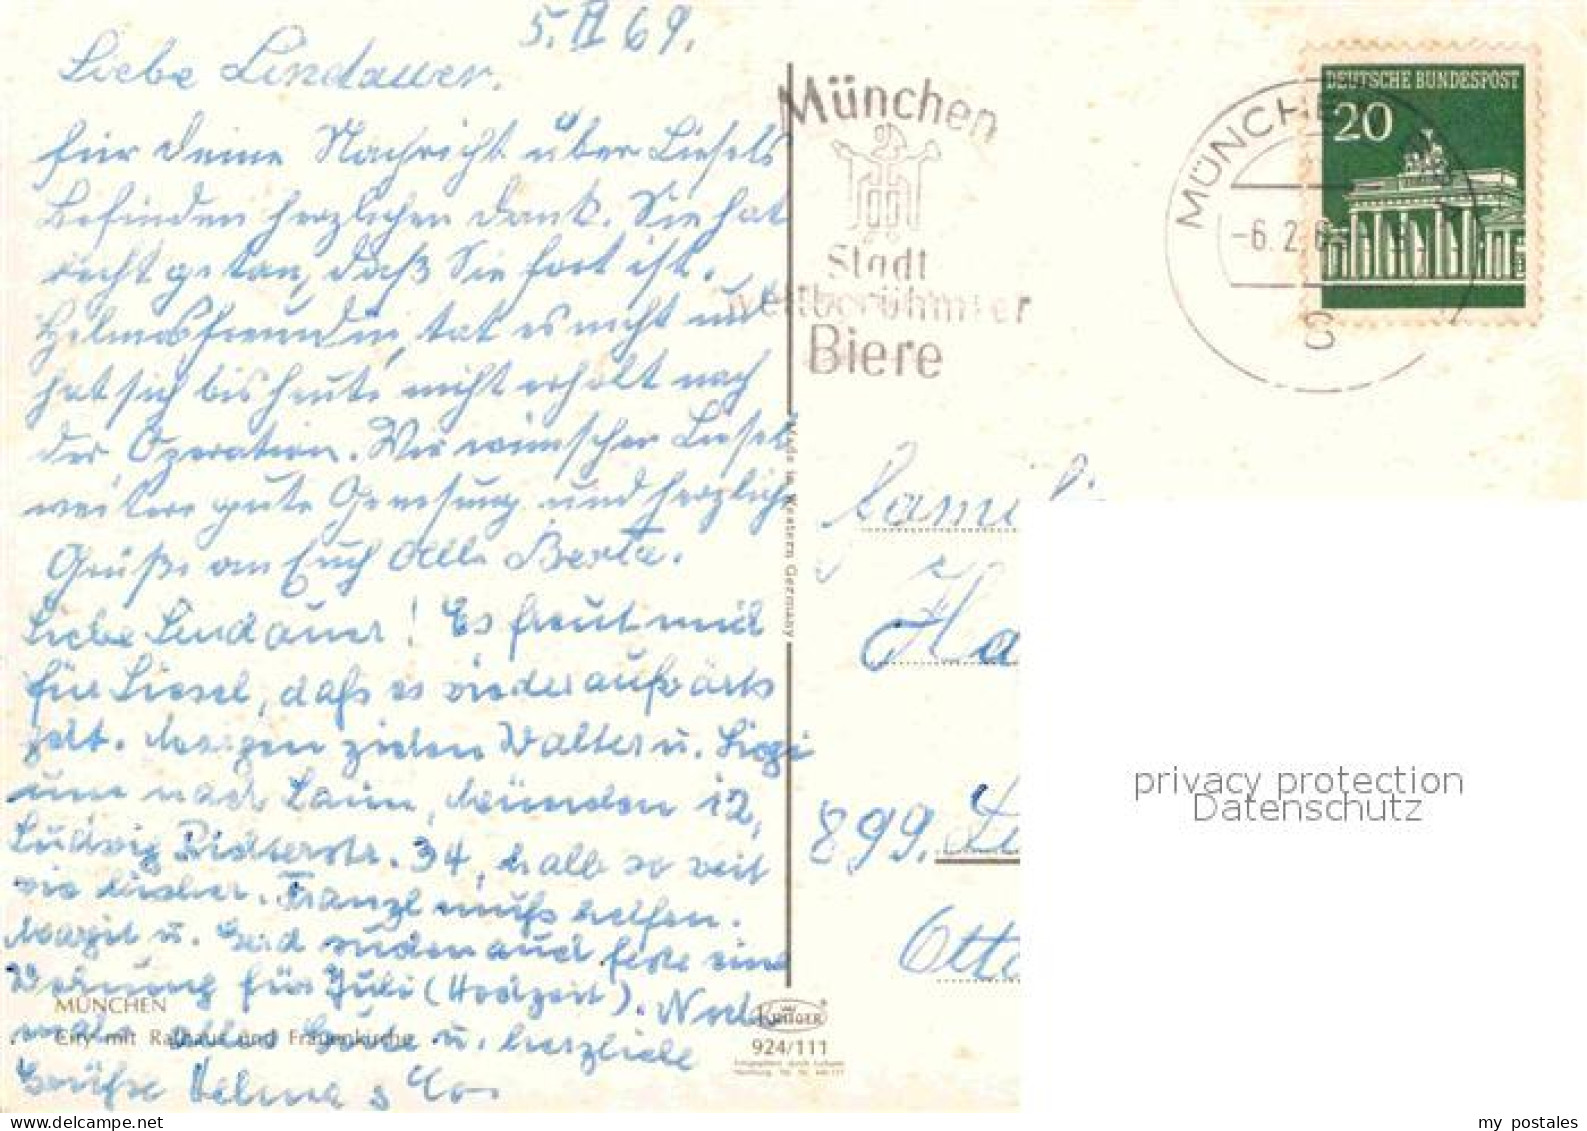 5. II 69.
Liebe Lindauer.
für Deine Nachricht über Liesels
Befinden herzlichen Dank. Sie hat
recht getan, daß Sie fort ist.
Helmas freundin, tat es nicht und
hat sich bis heute nicht erholt nach
der Operation. Wir wünschen Liesel
weitere gute Genesung und herzliche
Grüße an Euch Alle Berta.
Liebe Lindauer! Es freut mich
für Liesel, dafs es wieder aufwärts
geht. Morgen ziehen Walter u. Sigi
um nach Laim, München 12,
Ludwig Richterstr. 34, halb so weit
wie bisher. Franzl mufs helfen.
Margit u. Gerd suchen auch feste eine
Wohnung für Juli (Hochzeit). Noch
mals alles Gute u. herzliche
Grüfse Helma & Co.
MÜNCHEN
City mit Rathaus und Frauenkirche
Made in Western Germany
KRÜGER
924/111
München
Stadt
weltberühmter
Biere
MÜNCHEN
-6.2.6
8
DEUTSCHE BUNDESPOST
20
Famili
Ha
899. Li
Otto
privacy protection
Datenschutz
my postales